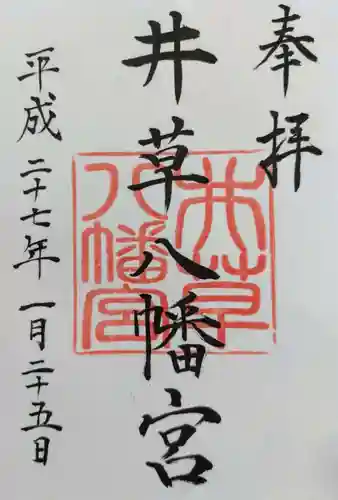 奉拝
井草八幡宮
平成二十七年一月二十五日
井草
八幡宮